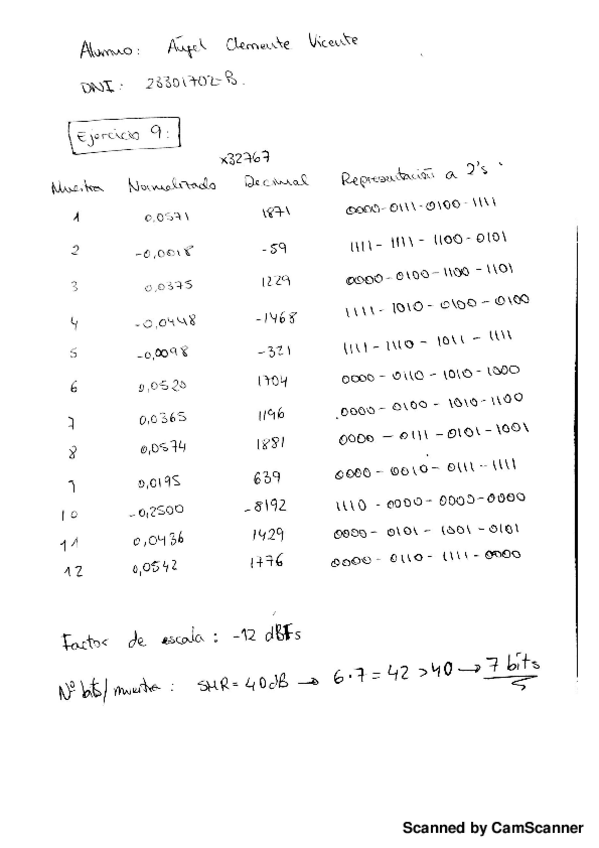 Alumno: Ángel Clemente Vicente
DNI: 23301702-B.
Ejercicio 9:
x32767
Muestra Normalizado Decimal Representación a 2's
1 0,0571 1871 0000-0111-0100-1111
2 -0,0018 -59 1111-1111-1100-0101
3 0,0375 1229 0000-0100-1100-1101
4 -0,0448 -1468 1111-1010-0100-0100
5 -0,0098 -321 1111-1110-1011-1111
6 0,0520 1704 0000-0110-1010-1000
7 0,0365 1196 0000-0100-1010-1100
8 0,0574 1881 0000-0111-0101-1001
9 0,0195 639 0000-0010-0111-1111
10 -0,2500 -8192 1110-0000-0000-0000
11 0,0436 1429 0000-0101-1001-0101
12 0,0542 1776 0000-0110-1111-0000
Factor de escala: -12 dBFs
Nº bits/muestra: SMR=40dB → 6·7=42>40 → 7 bits
Scanned by CamScanner